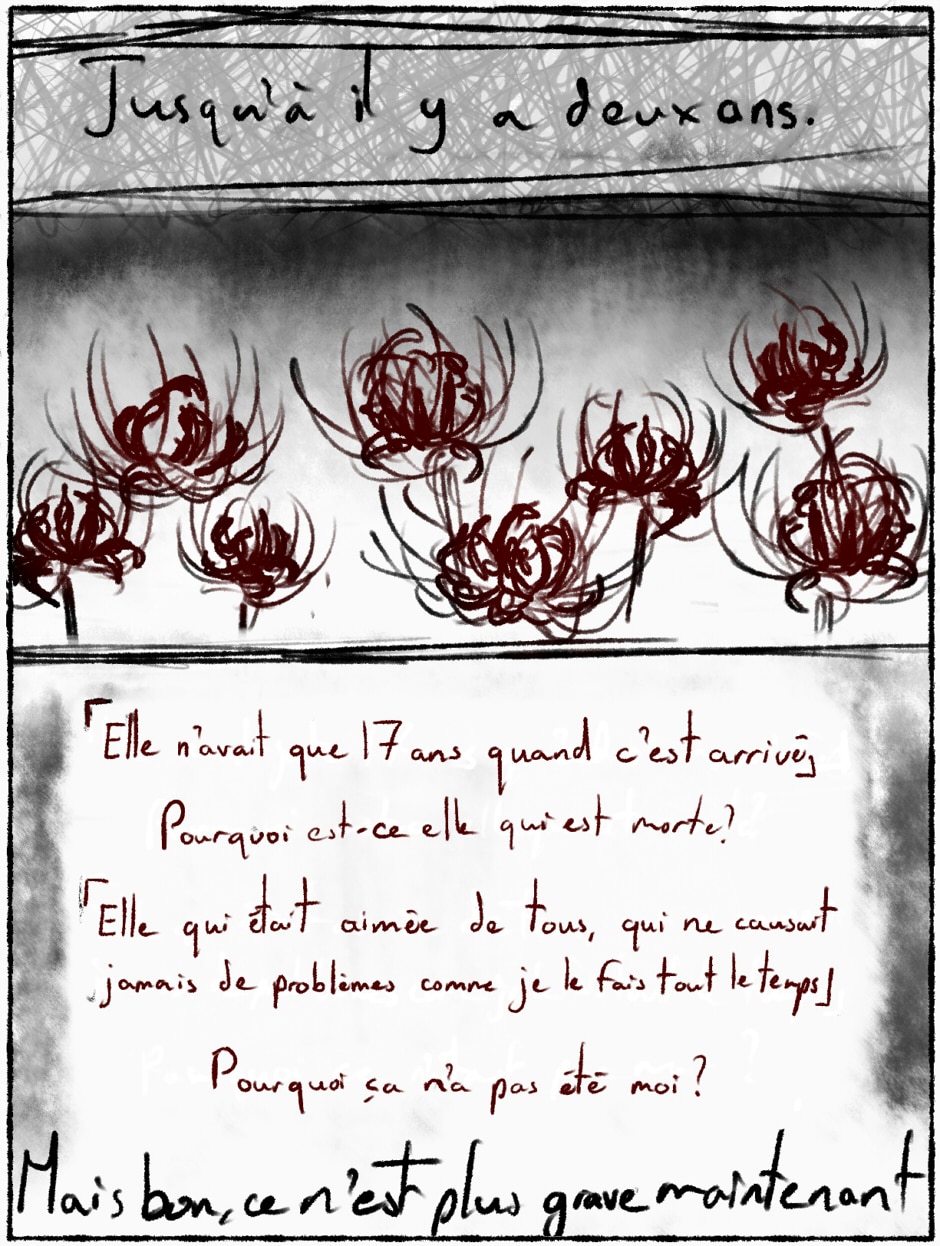 Jusqu'à il y a deux ans.
「Elle n'avait que 17 ans quand c'est arrivé」
Pourquoi est-ce elle qui est morte?
「Elle qui était aimée de tous, qui ne causait
jamais de problèmes comme je le fais tout le temps」
Pourquoi ça n'a pas été moi ?
Mais bon, ce n'est plus grave maintenant